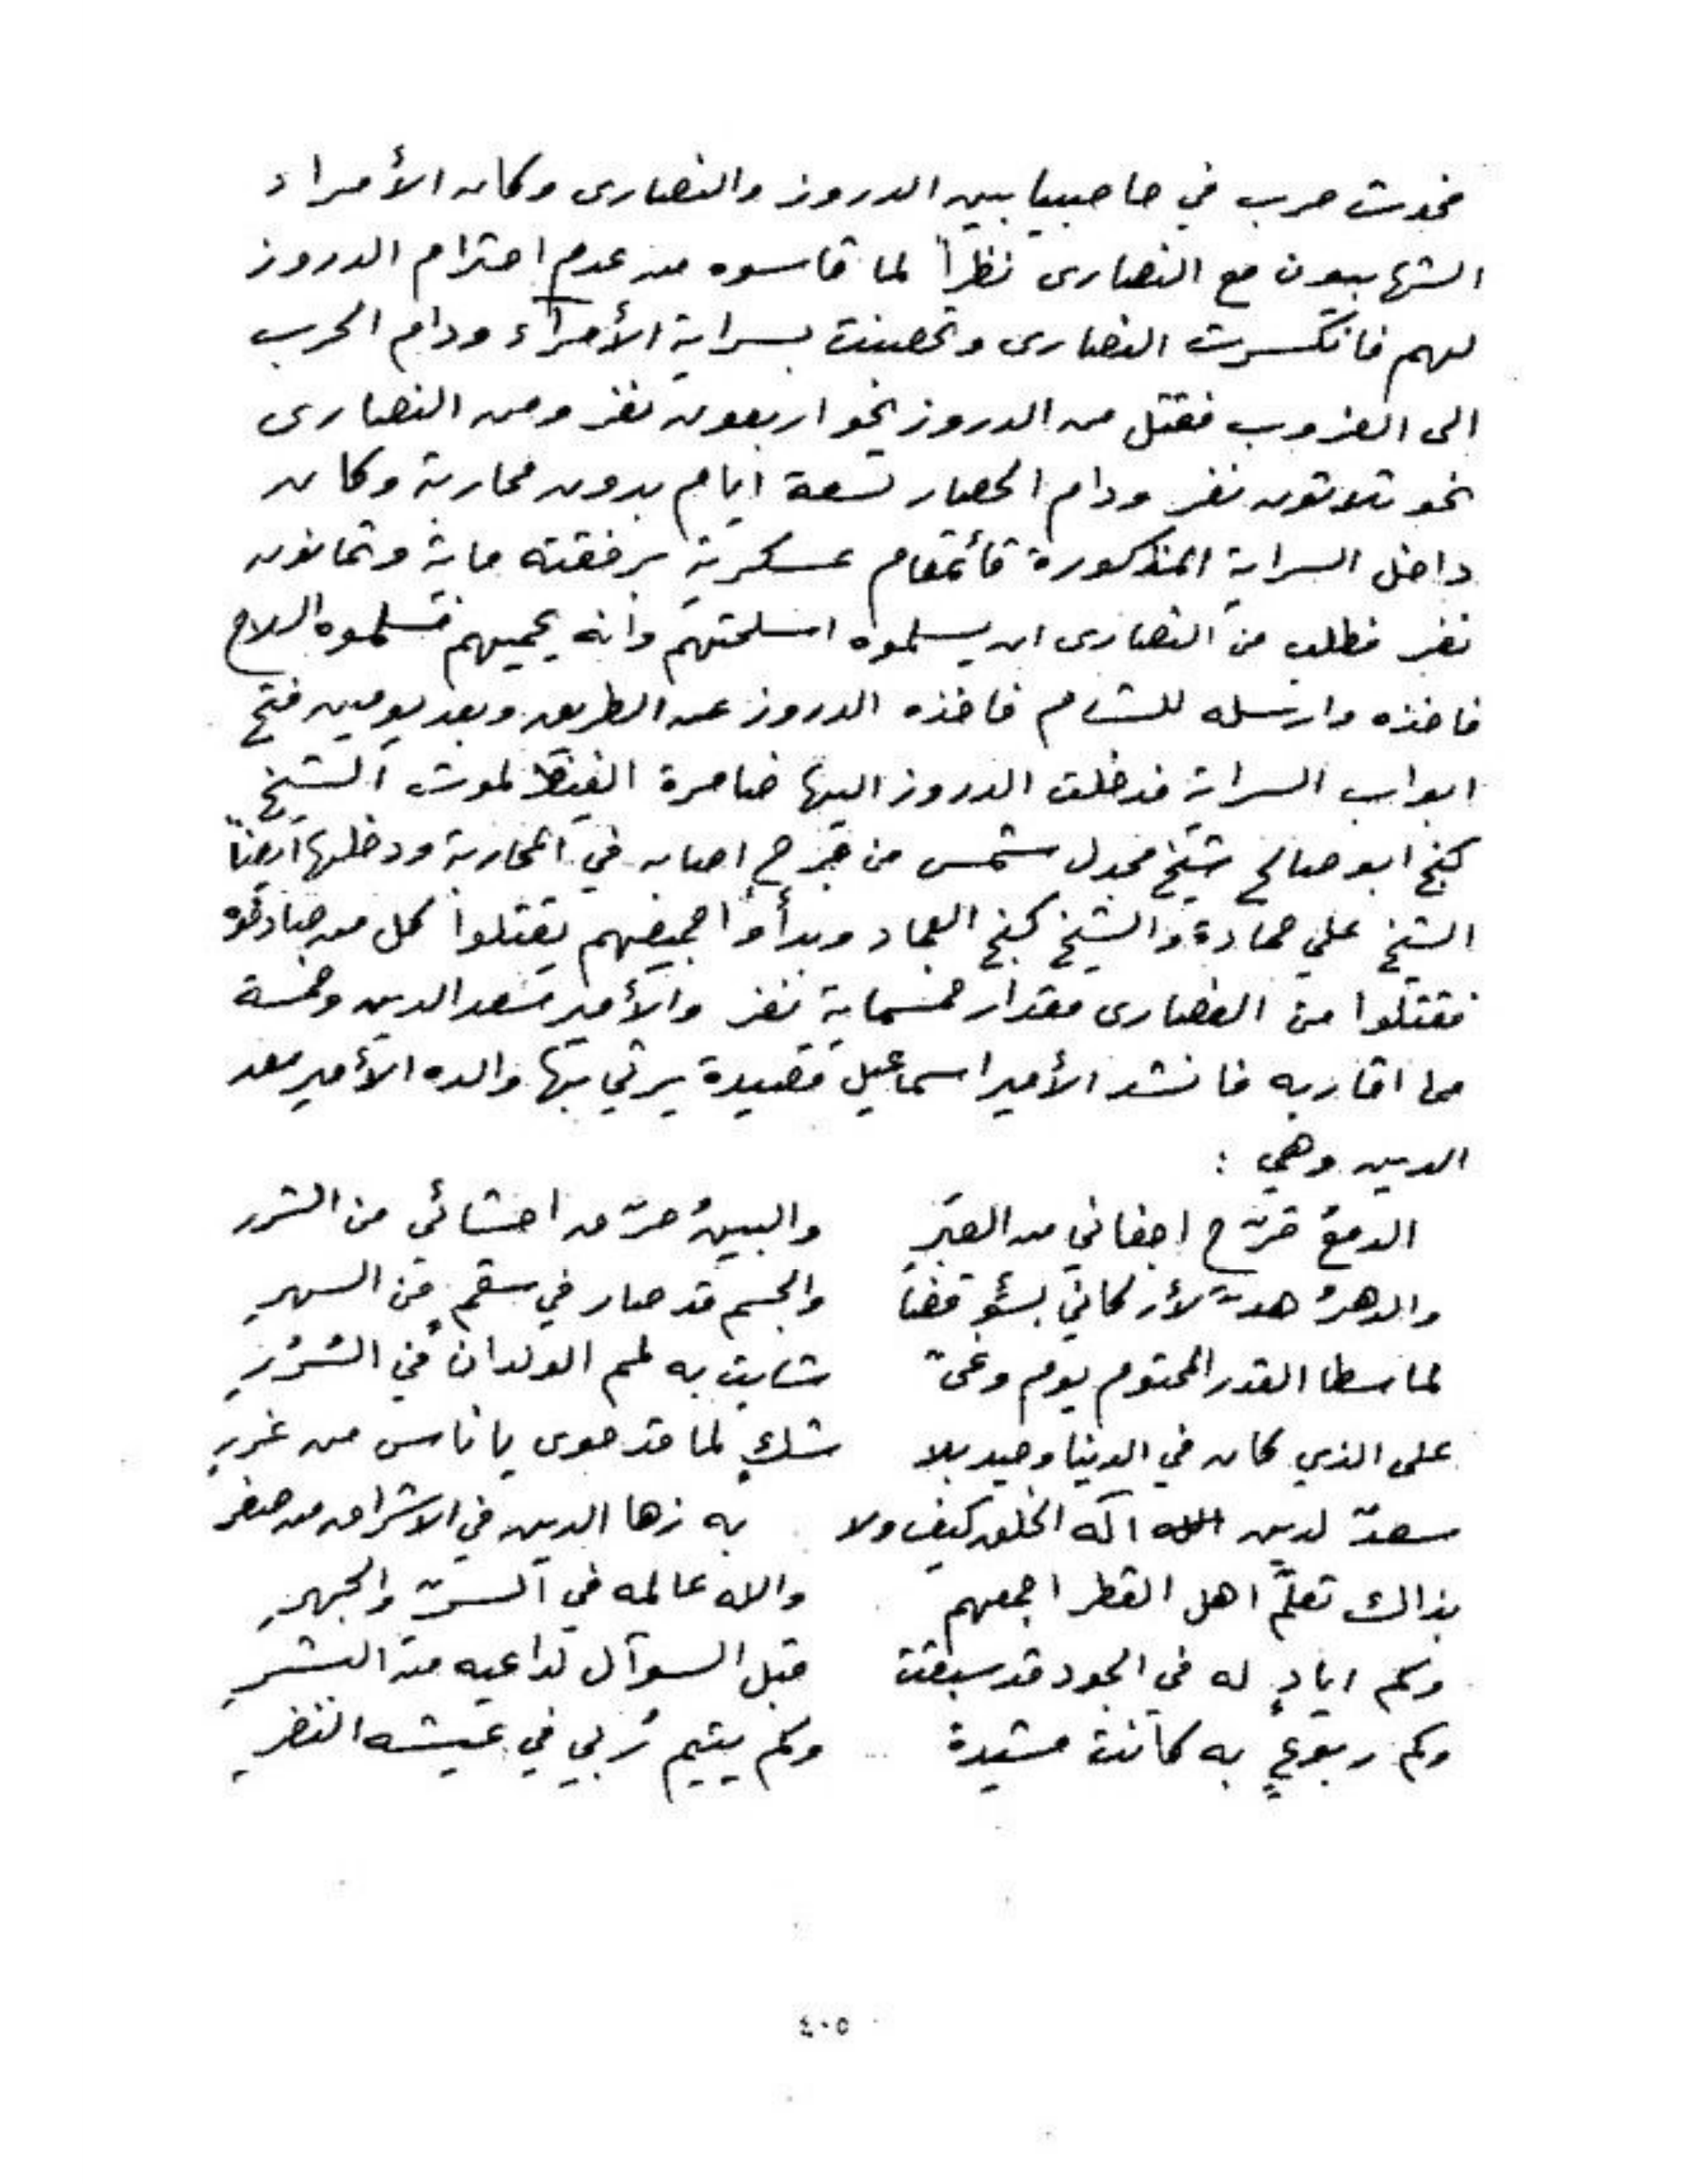 فحدث حرب في حاصبيا بين الدروز والنصارى وكان الأمراء
الشهابيون مع النصارى نظراً لما قاسوه من عدم احترام الدروز
لهم فانكسرت النصارى وتحصنت بسراية الأمراء ودام الحرب
الى الغروب فقتل من الدروز نحو اربعون نفر ومن النصارى
نحو ثلاثون نفر ودام الحصار تسعة ايام بدون محاربة وكان
داخل السراية المذكورة قائمقام عسكرية برفقته ماية وثمانون
نفر فطلب من النصارى ان يسلموه اسلحتهم وانه يحميهم فسلموه السلاح
فاخذه وارسله للشام فاخذه الدروز عن الطريق وبعد يومين فتح
ابواب السراية فدخلت الدروز اليها ضامرة الغيظ لموت الشيخ
كنج ابو صالح شيخ مجدل شمس من جرح اصابه في المحاربة ودخلها ايضاً
الشيخ علي حمادة والشيخ كنج العماد وبدأوا جميعهم يقتلوا كل من صادفوه
فقتلوا من النصارى مقدار خمسماية نفر والأمير سعد الدين وخمسة
من اقاربه فانشد الأمير اسماعيل قصيدة يرثي بها والده الأمير سعد
الدين وهي :
الدمعُ قرّح اجفاني من العبَرِ والبينُ حرّق احشائي من الشرر
والدهرُ هدّ لأركاني بسؤ قضاً والجسم قد صار في سقمٍ من السهرِ
لما سطا القدر المحتوم يوم وغىً شابت به لمم الولدان في السُرُرِ
على الذي كان في الدنيا وحيد بلا شكٍ لما قد حوى يا ناس من غررِ
سعدٌ لدين الله اله الخلق كيف ولا به زها الدين في الاشراق من صغر
بذاك تعلمُ اهل القطر اجمعهم والله عالمه في السرّ والجهرِ
وكم ايادٍ له في الجود قد سبقت قبل السوآل لداعيه من البشرِ
وكم ربوعٍ به كانت مشيدةً وكم يتيم رُبي في عيشه النضرِ
٤٠٥